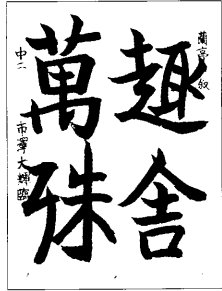 蘭亭叙
趣舎
萬殊
中二
市澤大輝臨